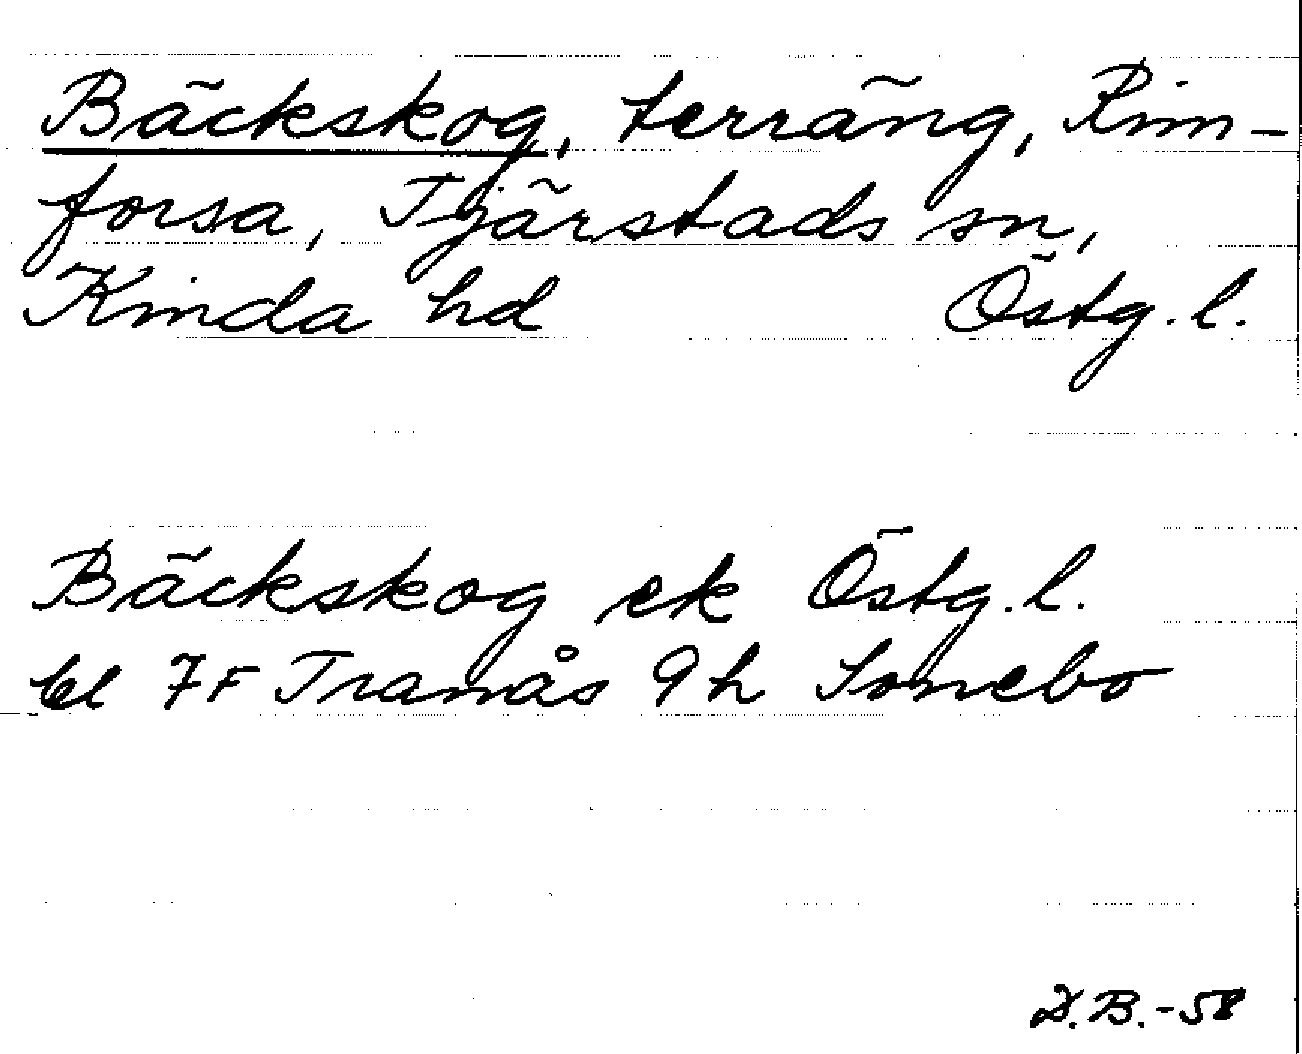 Bäckskog, terräng, Rim-
forsa, Tjärstads sn,
Kinda hd Östg. l.
Bäckskog ek Östg. l.
bl 7F Tranås 9h Sonebo
D.B.-58